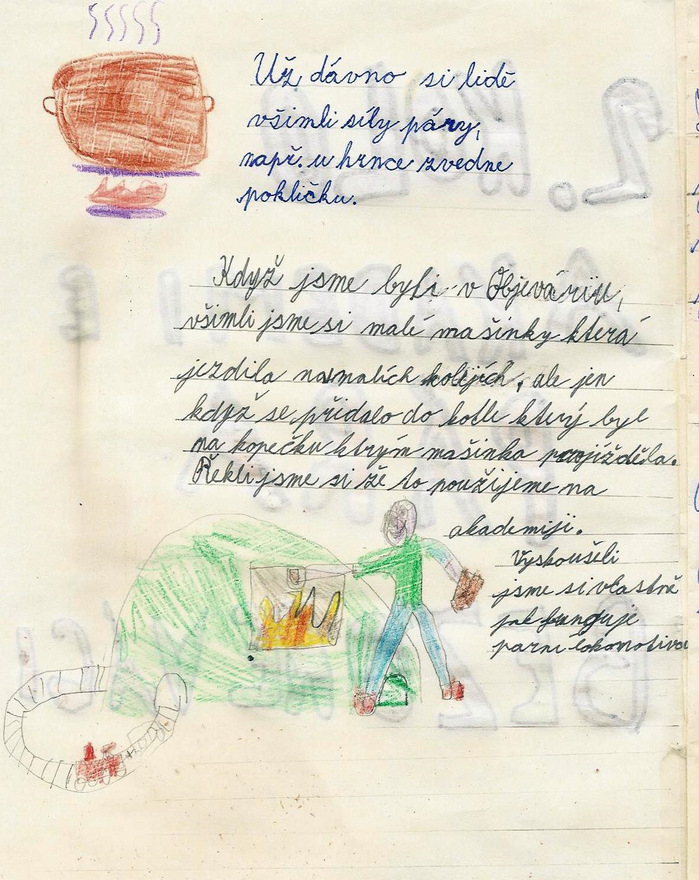 Už dávno si lidé
všimli síly páry,
např. u hrnce zvedne
pokličku.
Když jsme byli v Objeváriu,
všimli jsme si malé mašinky která
jezdila na malích kolejích, ale jen
když se přidalo do kotle který byl
na kopečku ktrým mašinka projížděla.
Řekli jsme si že to použijeme na
akademiji.
Vyskoušeli
jsme si vlastně
jak funguje
parní lokomotiva